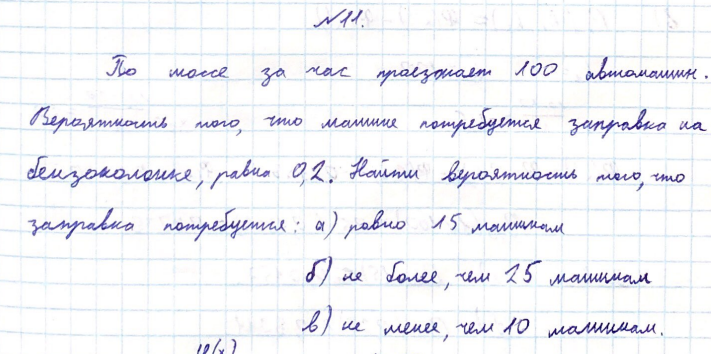 №11.
По шоссе за час проезжает 100 автомашин.
Вероятность того, что машине потребуется заправка на
бензоколонке, равна 0,2. Найти вероятность того, что
заправка потребуется: а) ровно 15 машинам
б) не более, чем 25 машинам
в) не менее, чем 10 машинам.